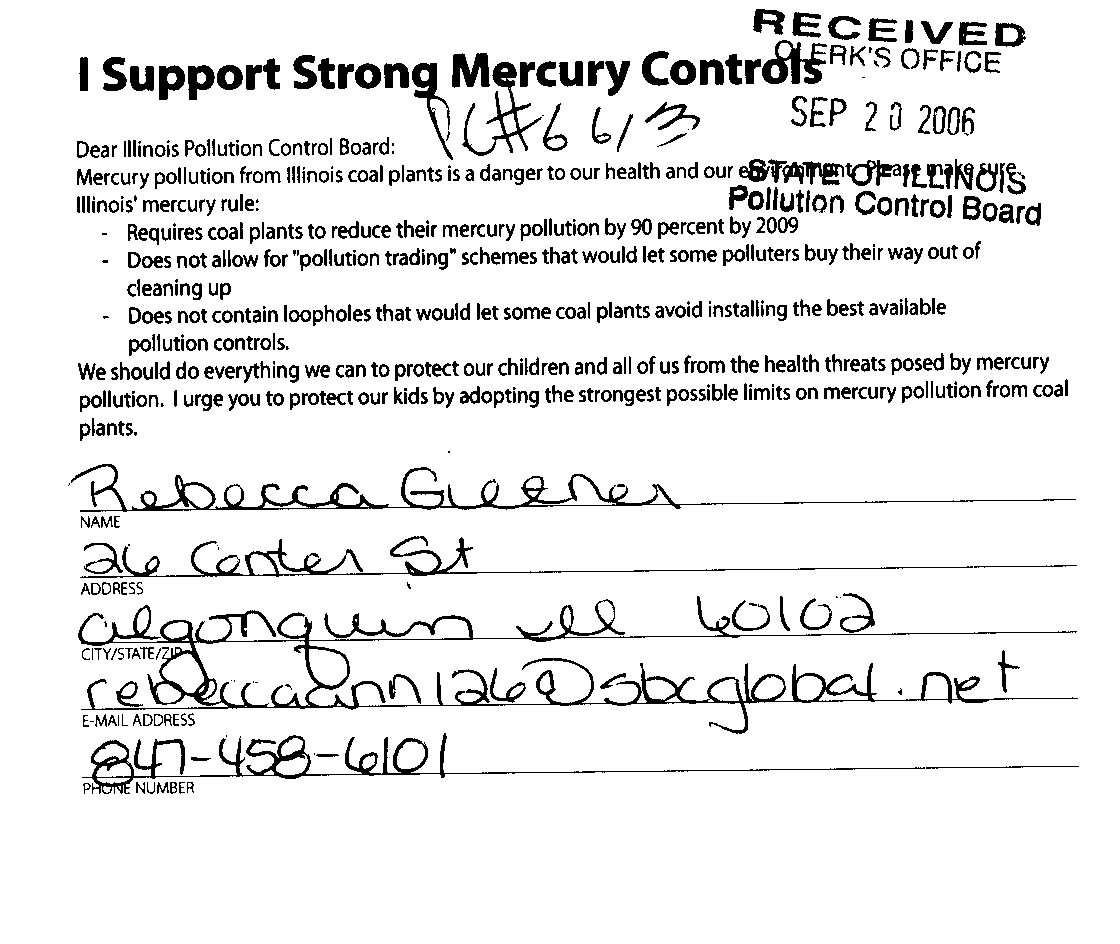 RECEIVED
CLERK'S OFFICE
I Support Strong Mercury Controls
SEP 20 2006
PC#6613
Dear Illinois Pollution Control Board:
Mercury pollution from Illinois coal plants is a danger to our health and our environment. Please make sure
STATE OF ILLINOIS
Illinois' mercury rule:
Pollution Control Board
- Requires coal plants to reduce their mercury pollution by 90 percent by 2009
- Does not allow for "pollution trading" schemes that would let some polluters buy their way out of
cleaning up
- Does not contain loopholes that would let some coal plants avoid installing the best available
pollution controls.
We should do everything we can to protect our children and all of us from the health threats posed by mercury
pollution. I urge you to protect our kids by adopting the strongest possible limits on mercury pollution from coal
plants.
Rebecca Greener
NAME
26 Center St
ADDRESS
algonquin ill 60102
CITY/STATE/ZIP
rebeccaann126@sbcglobal.net
E-MAIL ADDRESS
847-458-6101
PHONE NUMBER